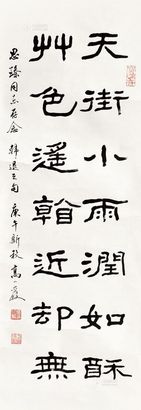 天街小雨潤如酥
艸色遙看近却無
思臻同志存念 韓退之句 庚午新秋 高